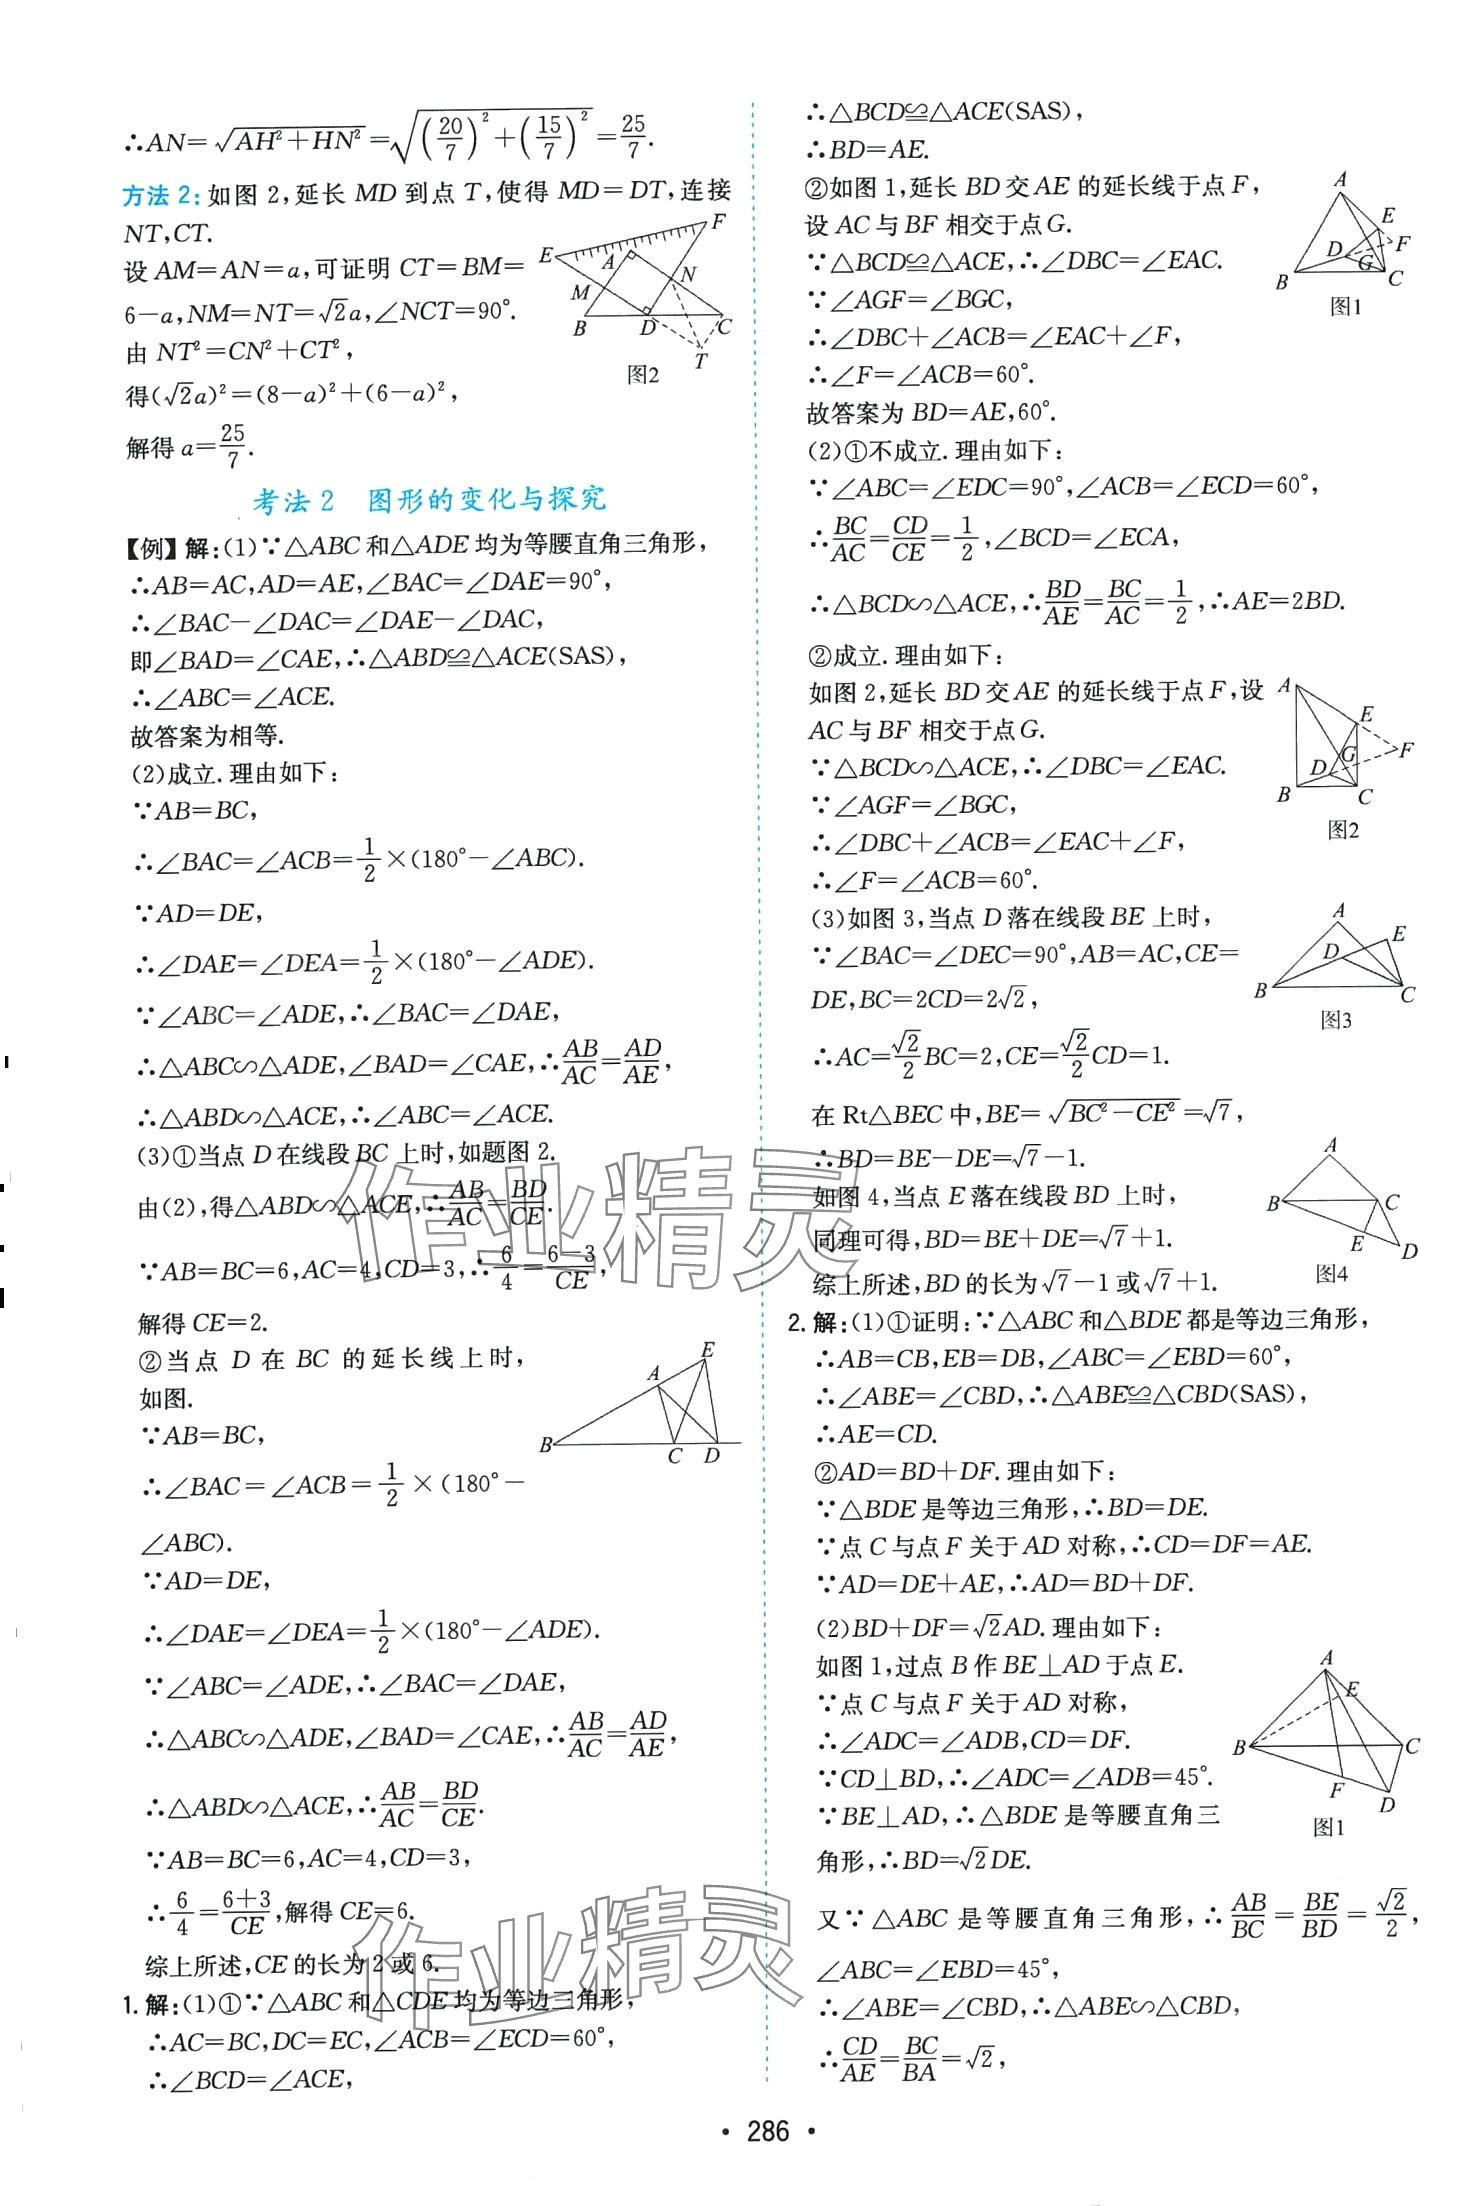 ∴AN=√(AH²+HN²)=√((20/7)²+(15/7)²)=25/7.
方法2:如图2,延长 MD 到点 T,使得 MD=DT,连接
NT,CT.
设 AM=AN=a,可证明 CT=BM=
6-a,NM=NT=√2a,∠NCT=90°.
由 NT²=CN²+CT²,
得(√2a)²=(8-a)²+(6-a)²,
解得 a=25/7.
E
F
A
M
N
B
D
C
T
图2
考法2 图形的变化与探究
【例】解:(1)∵△ABC 和△ADE 均为等腰直角三角形,
∴AB=AC,AD=AE,∠BAC=∠DAE=90°,
∴∠BAC-∠DAC=∠DAE-∠DAC,
即∠BAD=∠CAE,∴△ABD≌△ACE(SAS),
∴∠ABC=∠ACE.
故答案为相等.
(2)成立.理由如下:
∵AB=BC,
∴∠BAC=∠ACB=1/2×(180°-∠ABC).
∵AD=DE,
∴∠DAE=∠DEA=1/2×(180°-∠ADE).
∵∠ABC=∠ADE,∴∠BAC=∠DAE,
∴△ABC∽△ADE,∠BAD=∠CAE,∴AB/AC=AD/AE,
∴△ABD∽△ACE,∴∠ABC=∠ACE.
(3)①当点 D 在线段 BC 上时,如题图 2.
由(2),得△ABD∽△ACE,∴AB/AC=BD/CE.
∵AB=BC=6,AC=4,CD=3,∴6/4=(6-3)/CE,
解得 CE=2.
②当点 D 在 BC 的延长线上时,
如图.
∵AB=BC,
∴∠BAC=∠ACB=1/2×(180°-
∠ABC).
E
A
B
C
D
∵AD=DE,
∴∠DAE=∠DEA=1/2×(180°-∠ADE).
∵∠ABC=∠ADE,∴∠BAC=∠DAE,
∴△ABC∽△ADE,∠BAD=∠CAE,∴AB/AC=AD/AE,
∴△ABD∽△ACE,∴AB/AC=BD/CE.
∵AB=BC=6,AC=4,CD=3,
∴6/4=(6+3)/CE,解得 CE=6.
综上所述,CE 的长为 2 或 6.
1.解:(1)①∵△ABC 和△CDE 均为等边三角形,
∴AC=BC,DC=EC,∠ACB=∠ECD=60°,
∴∠BCD=∠ACE,
∴△BCD≌△ACE(SAS),
∴BD=AE.
②如图 1,延长 BD 交 AE 的延长线于点 F,
设 AC 与 BF 相交于点 G.
∵△BCD≌△ACE,∴∠DBC=∠EAC.
∵∠AGF=∠BGC,
∴∠DBC+∠ACB=∠EAC+∠F,
∴∠F=∠ACB=60°.
故答案为 BD=AE,60°.
A
E
D
F
G
B
C
图1
(2)①不成立.理由如下:
∵∠ABC=∠EDC=90°,∠ACB=∠ECD=60°,
∴BC/AC=CD/CE=1/2,∠BCD=∠ECA,
∴△BCD∽△ACE,∴BD/AE=BC/AC=1/2,∴AE=2BD.
②成立.理由如下:
如图2,延长 BD 交 AE 的延长线于点 F,设
AC 与 BF 相交于点 G.
∵△BCD∽△ACE,∴∠DBC=∠EAC.
∵∠AGF=∠BGC,
∴∠DBC+∠ACB=∠EAC+∠F,
∴∠F=∠ACB=60°.
A
E
F
G
D
B
C
图2
(3)如图 3,当点 D 落在线段 BE 上时,
∵∠BAC=∠DEC=90°,AB=AC,CE=
DE,BC=2CD=2√2,
∴AC=√2/2BC=2,CE=√2/2CD=1.
在 Rt△BEC 中,BE=√(BC²-CE²)=√7,
∴BD=BE-DE=√7-1.
A
E
D
B
C
图3
如图 4,当点 E 落在线段 BD 上时,
同理可得,BD=BE+DE=√7+1.
综上所述,BD 的长为√7-1 或√7+1.
A
B
C
E
D
图4
2.解:(1)①证明:∵△ABC 和△BDE 都是等边三角形,
∴AB=CB,EB=DB,∠ABC=∠EBD=60°,
∴∠ABE=∠CBD,∴△ABE≌△CBD(SAS),
∴AE=CD.
②AD=BD+DF.理由如下:
∵△BDE 是等边三角形,∴BD=DE.
∵点 C 与点 F 关于 AD 对称,∴CD=DF=AE.
∵AD=DE+AE,∴AD=BD+DF.
(2)BD+DF=√2AD.理由如下:
如图 1,过点 B 作 BE⊥AD 于点 E.
∵点 C 与点 F 关于 AD 对称,
∴∠ADC=∠ADB,CD=DF.
∵CD⊥BD,∴∠ADC=∠ADB=45°.
∵BE⊥AD,∴△BDE 是等腰直角三
角形,∴BD=√2DE.
A
E
B
C
F
D
图1
又∵△ABC 是等腰直角三角形,∴AB/BC=BE/BD=√2/2,
∠ABC=∠EBD=45°,
∴∠ABE=∠CBD,∴△ABE∽△CBD,
∴CD/AE=BC/BA=√2,
作业精灵
作业精灵
· 286 ·